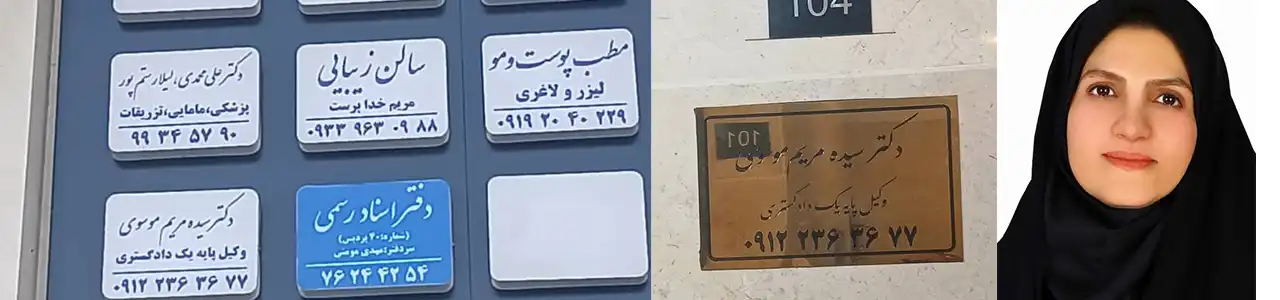 دکتر علی محمدی، لیلا رستم پور
پزشکی، مامایی، تزریقات
۹۹ ۳۴ ۵۷ ۹۰
سالن زیبایی
مریم خدا پرست
۰۹۳۳ ۹۶۳ ۰۹ ۸۸
مطب پوست و مو
لیزر و لاغری
۰۹۱۹ ۲۰ ۴۰ ۲۲۹
دکتر سیده مریم موسوی
وکیل پایه یک دادگستری
۰۹۱۲ ۲۳۶ ۳۶ ۷۷
دفتر اسناد رسمی
(شماره: ۴۰ پردیس)
سردفتر: مهدی مومنی
۷۶ ۲۴ ۴۲ ۵۴
104
101
دکتر سیده مریم موسوی
وکیل پایه یک دادگستری
۰۹۱۲ ۲۳۶ ۳۶ ۷۷